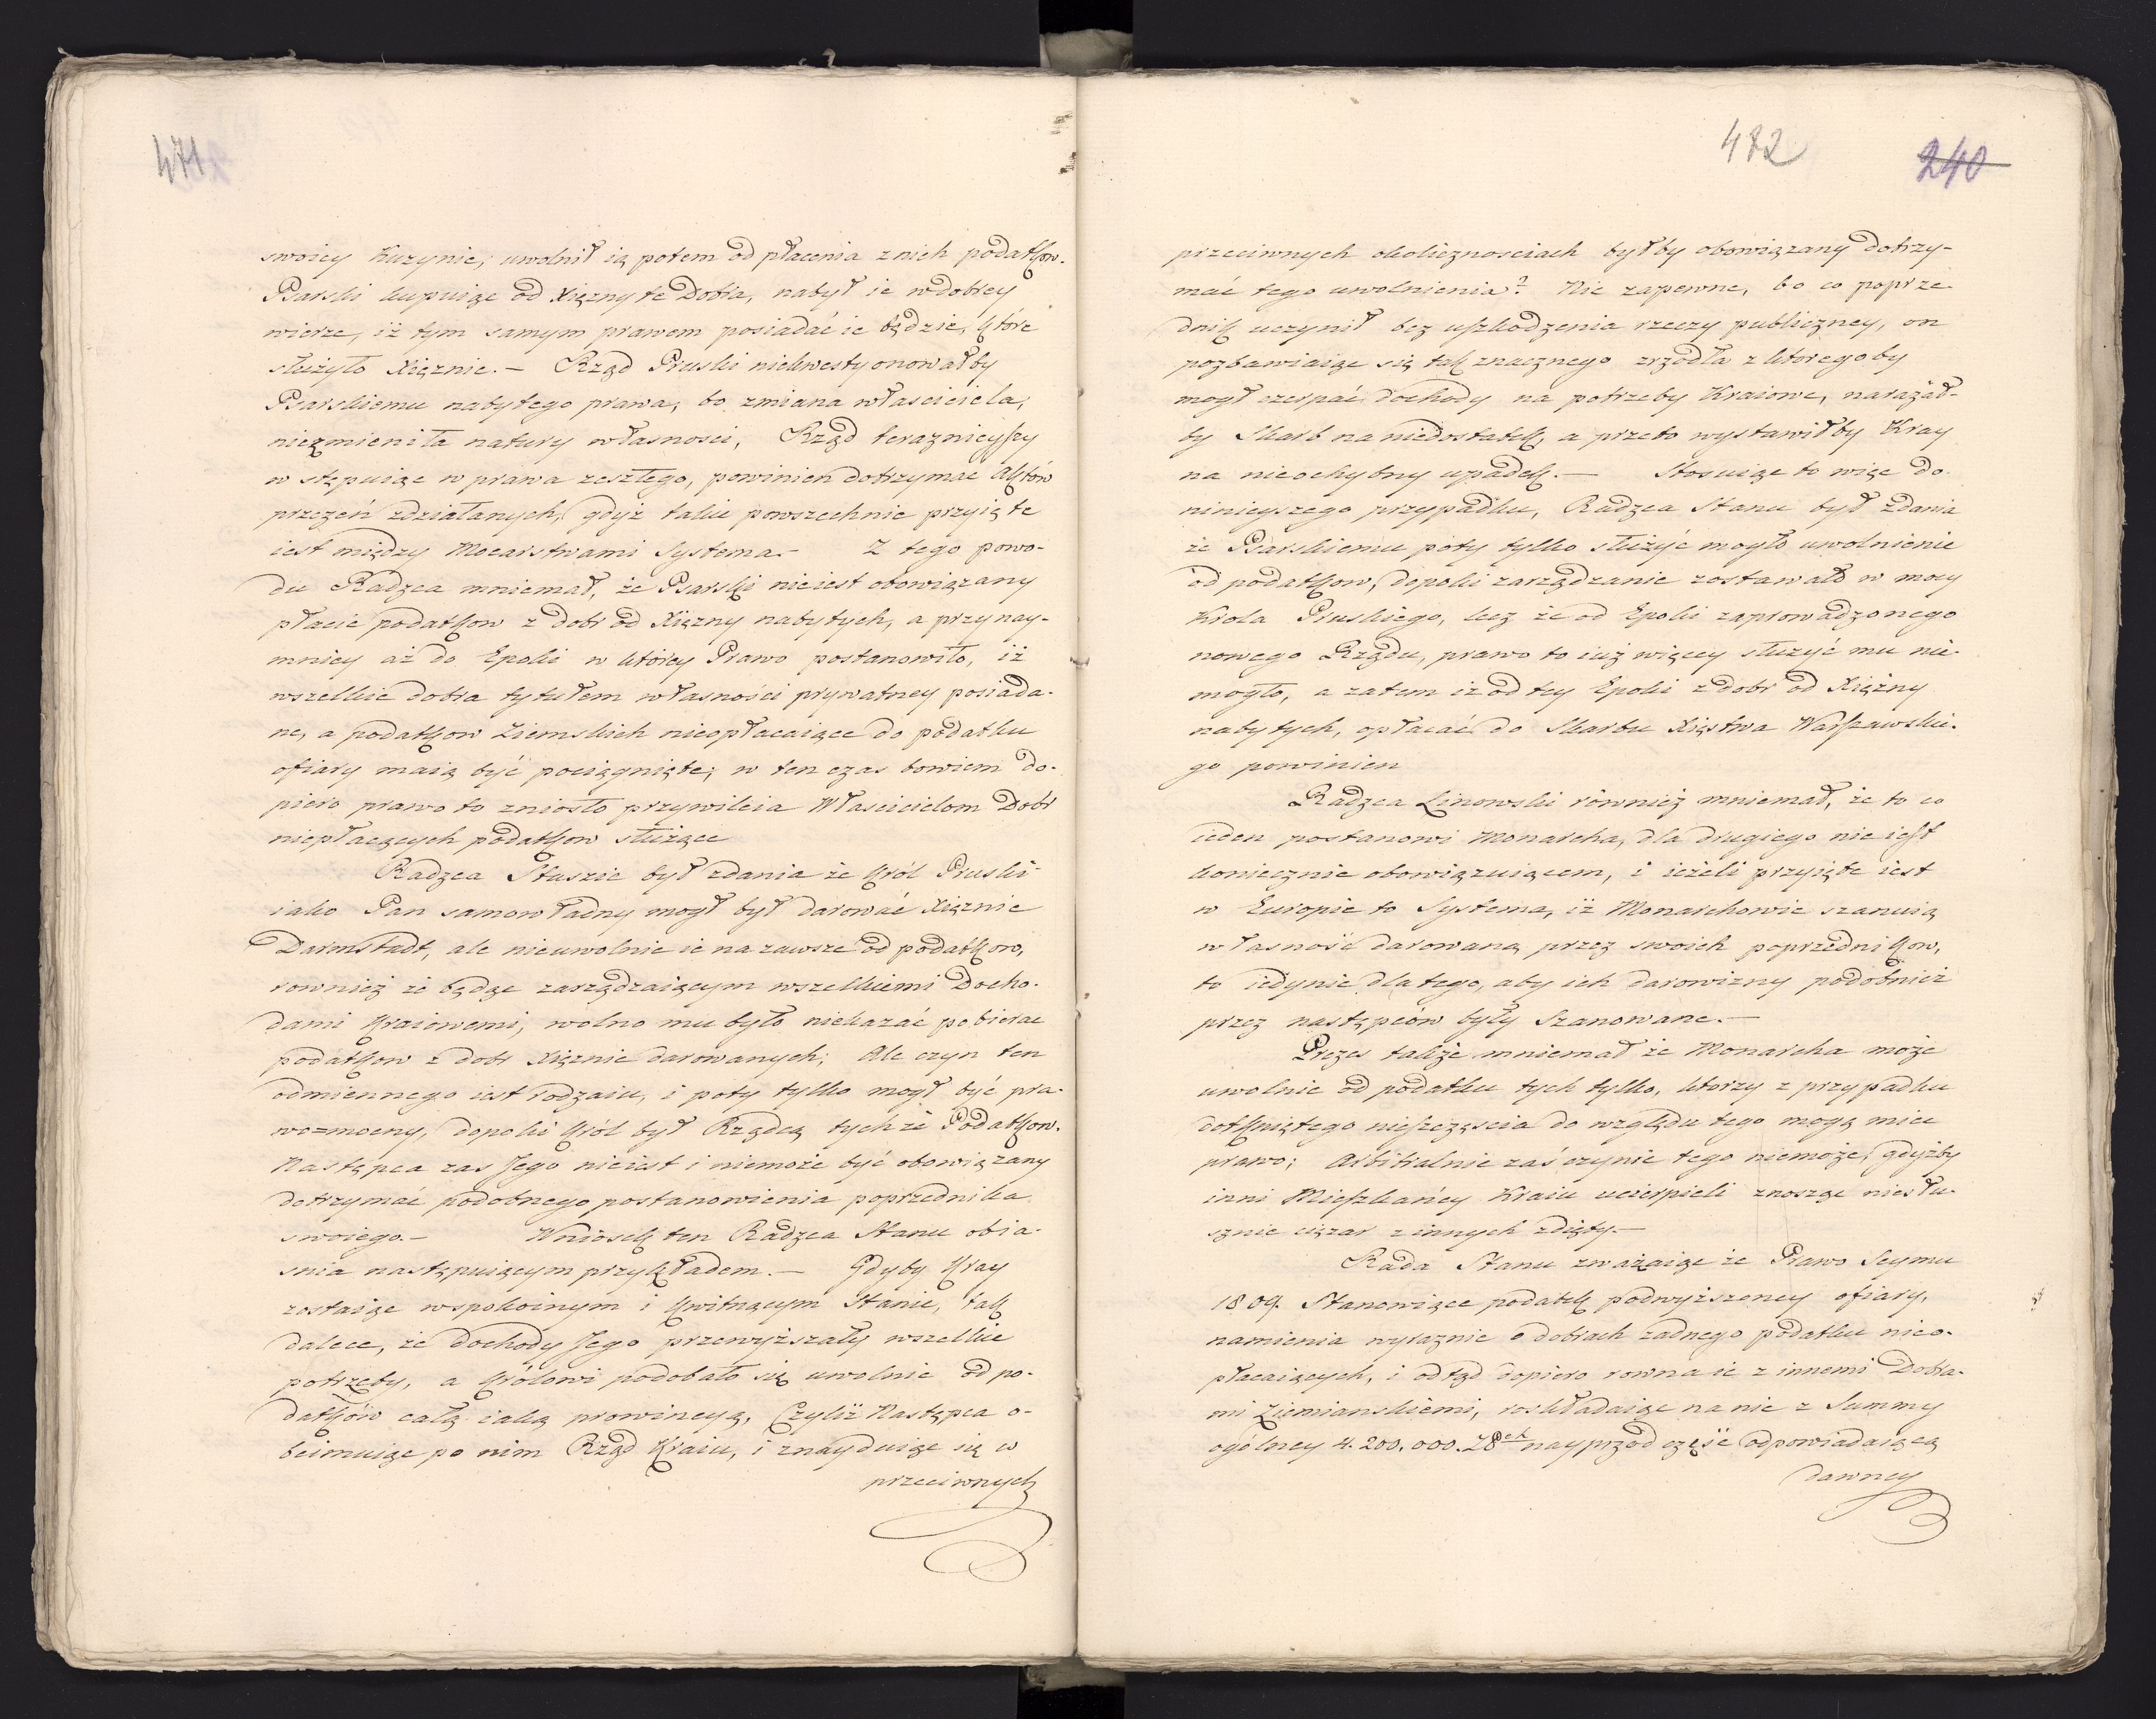 471
swoiey Kuzynie, uwolnił ią potem od płacenia z nich podatkow.
Psarski kupuiąc od Xiężny te Dobra, nabył ie w dobrey
wierze, iż tym samym prawem posiadać ie będzie, które
służyło Xiężnie. – Rząd Pruski niekwestyonowałby
Psarskiemu nabytego prawa, bo zmiana właściciela,
niezmieniła natury własności, Rząd teraznieyszy
wstępuiąc w prawa zeszłego, powinien dotrzymać Aktów
przezeń zdziałanych, gdyż takie powszechnie przyięte
iest między Mocarstwami Systema. – Z tego powo-
du Radzca mniemał, że Psarski nieiest obowiązany
płacić podatkow z dobr od Xiężny nabytych, a przynay-
mniey aż do Epoki w ktorey Prawo postanowiło, iż
wszelkie dobra tytułem własności prywatney posiada-
ne, a podatkow Ziemskich nieopłacaiące do podatku
ofiary maią być pociągnięte; w ten czas bowiem do-
piero prawo to zniosło przywileia Właścicielom Dobr
niepłacących podatkow służące
Radzca Staszic był zdania że Król Pruski
iako Pan samowładny mogł był darować Xiężnie
Darmstadt, ale nieuwolnić ie na zawsze od podatkow,
rownież że będąc zarządzaiącym wszelkiemi Docho-
dami Kraiowemi, wolno mu było niekazać pobierać
podatkow z dobr Xiężnie darowanych; Ale czyn ten
odmiennego iest rodzaiu, i poty tylko mogł być pra-
womocny, dopoki Król był Rządcą tychże Podatkow.
Następca zas Jego nieiest i niemoże być obowiązany
dotrzymać podobnego postanowienia poprzednika
swoiego. – Wniosek ten Radzca Stanu obia-
śnia następuiącym przykładem. – Gdyby Kray
zostaiąc w spokoinym i kwitnącym Stanie, tak
dalece, że dochody Jego przewyższały wszelkie
potrzeby, a Królowi podobało się uwolnić od po-
datków całą iaką prowincyą, Czyliż Następca o-
beimuiąc po nim Rząd Kraiu, i znayduiąc się w
przeciwnych
482
240
przeciwnych okolicznosciach byłby obowiązany dotrzy-
mać tego uwolnienia? Nie zapewne, bo co poprze-
dnik uczynił bez uszkodzenia rzeczy publiczney, on
pozbawiaiąc się tak znacznego zrzodła z ktoregoby
mogł czerpać dochody na potrzeby Kraiowe, narażał-
by Skarb na niedostatek, a przeto wystawiłby Kray
na nieochybny upadek. – Stosuiąc to więc do
ninieyszego przypadku, Radzca Stanu był zdania
że Psarskiemu poty tylko służyć mogło uwolnienie
od podatkow, dopoki zarządzanie zostawało w mocy
Krola Pruskiego, lecz że od Epoki zaprowadzonego
nowego Rządu, prawo to iuż więcey służyć mu nie-
mogło, a zatem iż od tey Epoki z dobr od Xiężny
nabytych, opłacać do Skarbu Xięstwa Warszawskie-
go powinien
Radzca Linowski również mniemał, że to co
ieden postanowi Monarcha, dla drugiego nie iest
koniecznie obowiązuiącem, i ieżeli przyięte iest
w Europie to Systema, iż Monarchowie szanuią
własność darowaną przez swoich poprzednikow,
to iedynie dla tego, aby ich darowizny podobnież
przez następców były szanowane. –
Prezes także mniemał że Monarcha może
uwolnić od podatku tych tylko, ktorzy z przypadku
dotkniętego nieszczęscia do względu tego mogą mieć
prawo; Arbitralnie zaś czynić tego niemoże, gdyżby
inni Mieszkańcy Kraiu ucierpieli znosząc niesłu-
sznie ciężar z innych zdięty. –
Rada Stanu zważaiąc że Prawo Seymu
1809. Stanowiące podatek podwyższoney ofiary,
namienia wyraznie o dobrach żadnego podatku nieo-
płacaiących, i odtąd dopiero rowna ie z innemi Dobra-
mi Ziemianskiemi, roskładaiąc na nie z Summy
ogólney 4.200,000. nayprzod część odpowiadaiącą
dawney